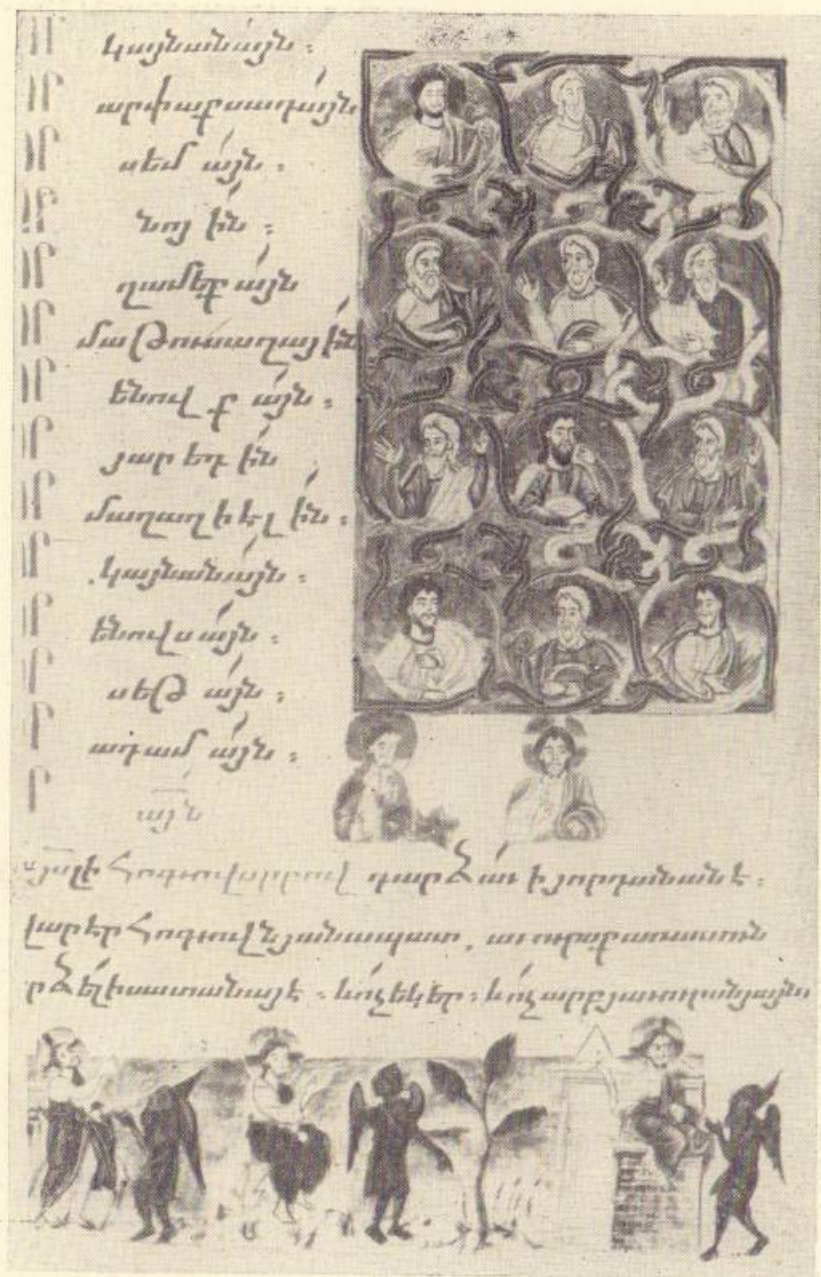 որ կայնանա՛յն :
որ արփաքսադա՛յն
որ սեմ ա՛յն :
որ նոյ ի՛ն :
որ ղամեք ա՛յն
որ մաթուսաղայ ի՛ն
որ ենովք ա՛յն :
որ յարեդ ի՛ն
որ մաղաղիէլ ի՛ն :
որ կայնանա՛յն :
որ ենովս ա՛յն :
որ սեթ ա՛յն :
որ ադամ ա՛յն :
ր այն
լի հոգւովսրբով դարձաւ ի յորդանանէ :
վարէր հոգւովն յանապատ, աւուրսքառասուն
րձել ի սատանայէ : եւոչեկեր : եւոչարբ յաւուրսնյայնո